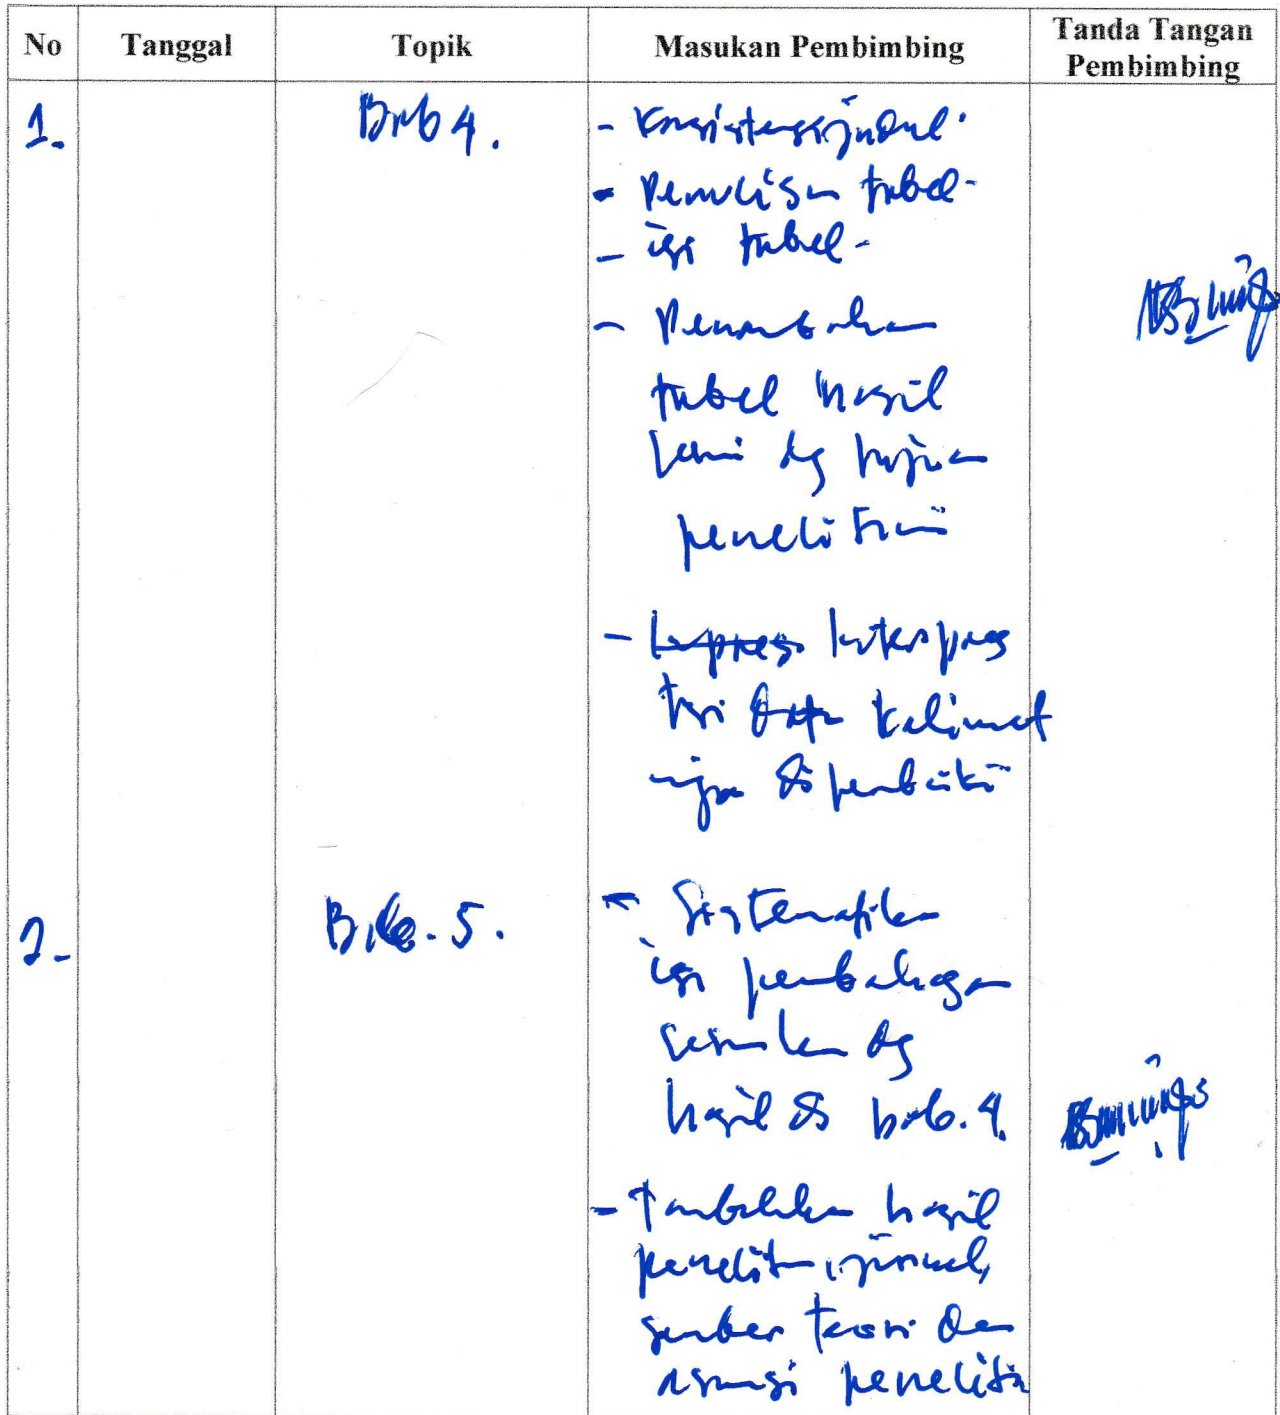 No Tanggal Topik Masukan Pembimbing Tanda Tangan Pembimbing
1. Bab 4. - Konsistensi judul.
- Penulisan tabel -
- isi tabel -
- Penambahan
tabel hasil
sesuai dg tujuan
penelitian
- Interpres
tasi kalimat
nya diperbaiki
2. Bab. 5. - Sistematika
isi pembahasan
sesuaikan dg
hasil di bab. 4.
- Tambahkan hasil
penelitian, jurnal,
sumber teori dan
asumsi peneliti